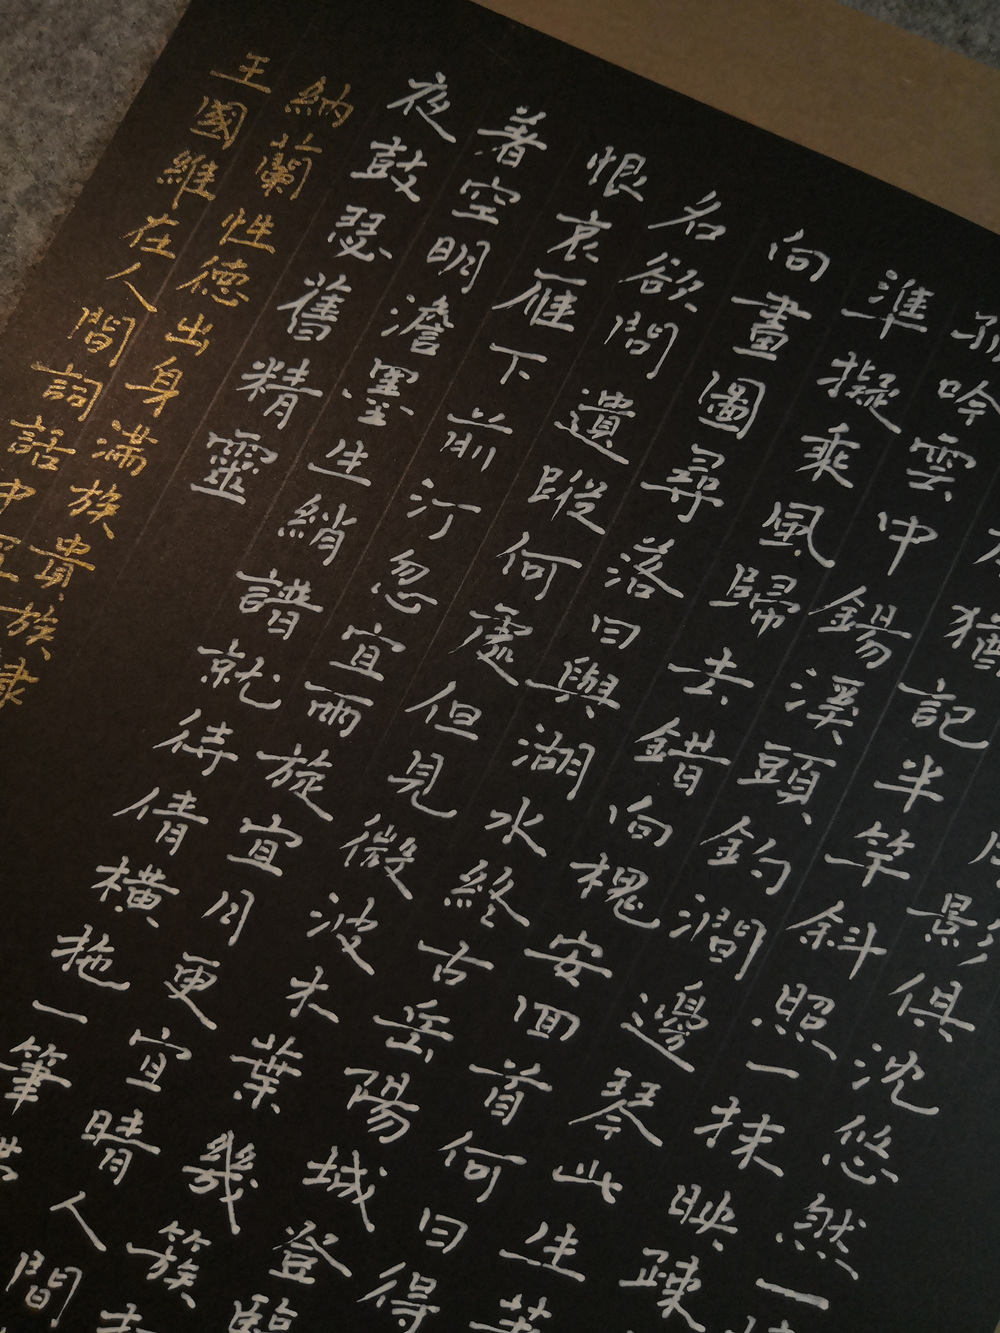 影俱沈悠然一
猶記半竿斜照一抹映疎
孤吟雲中錫溪頭釣澗邊琴此生著
準擬乘風歸去錯向槐安回首何日得
向畫圖尋落日與湖水終古岳陽城登臨
名欲問遺蹤何處但見微波木葉幾簇
恨哀雁下前汀忽宜雨旋宜月更宜晴人間
著空明澹墨生綃譜就待倩橫拖一筆
夜鼓瑟舊精靈
納蘭性德出身滿族貴族隸
王國維在人間詞話中